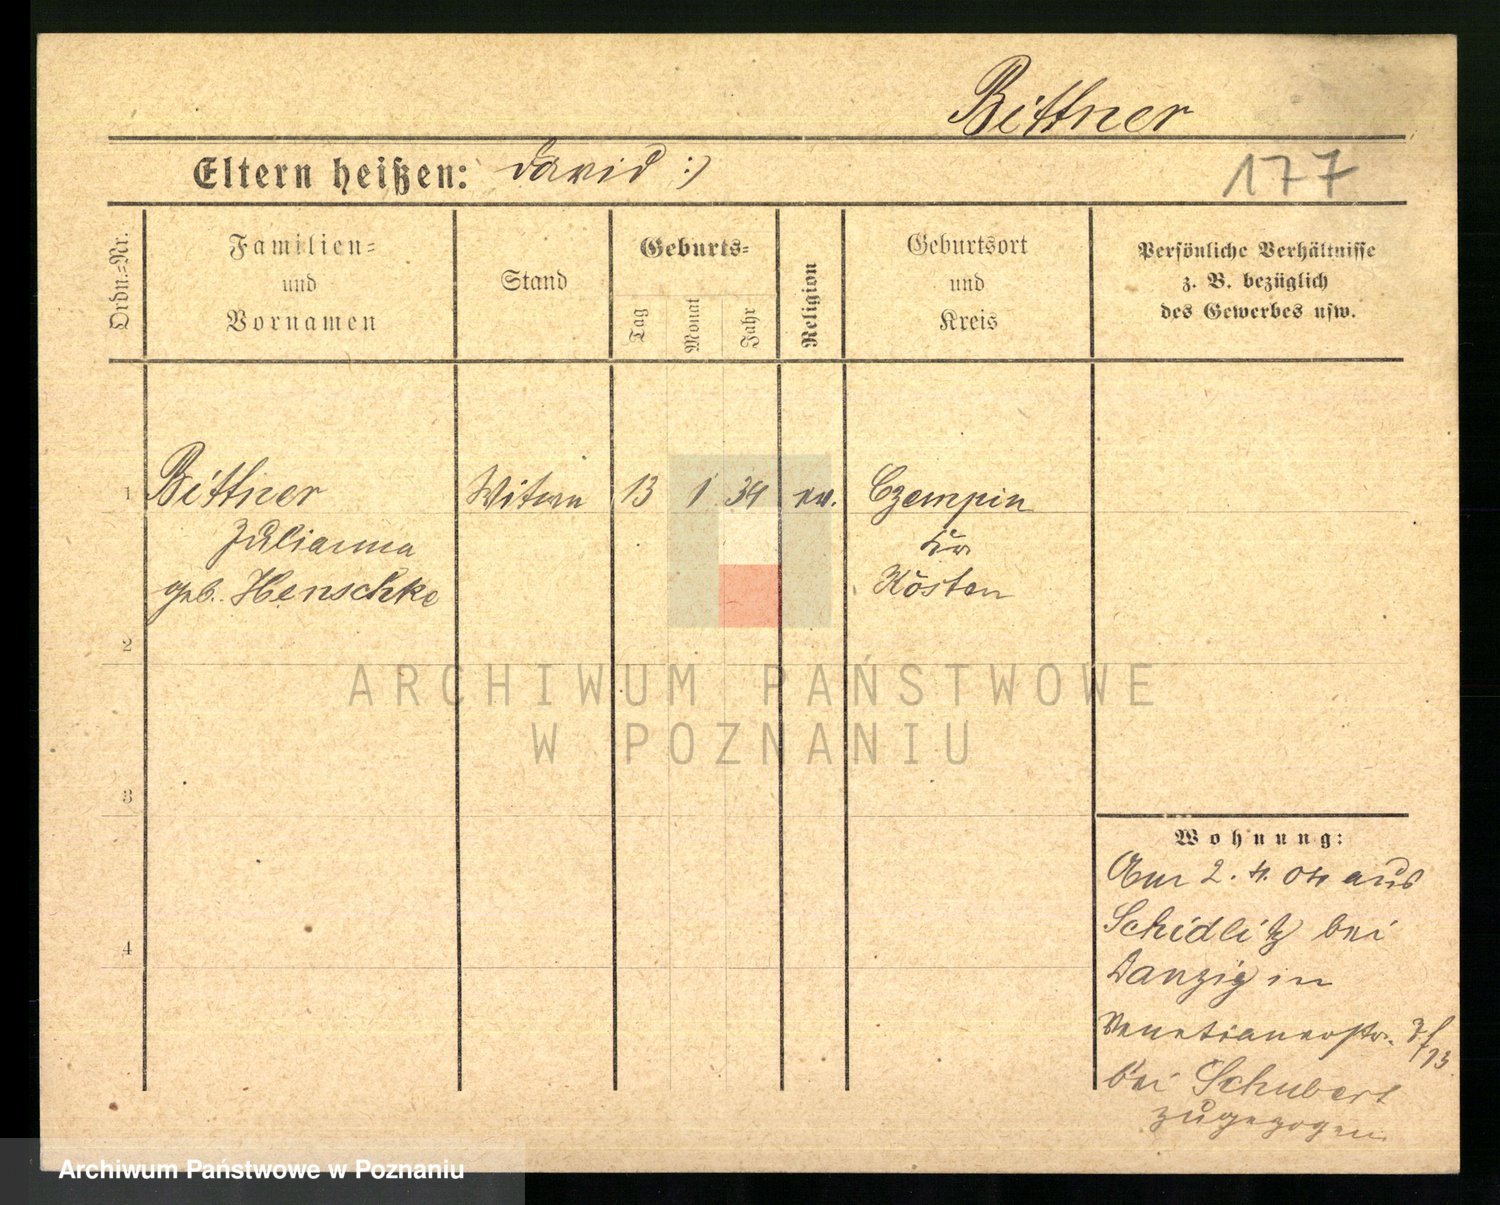 Bittner
Eltern heißen: David :)
177
Ordn.=Nr.
Familien=
und
Vornamen
Stand
Geburts=
Tag
Monat
Jahr
Religion
Geburtsort
und
Kreis
Persönliche Verhältnisse
z. B. bezüglich
des Gewerbes usw.
1 Bittner Witwe 13 1 34 ev. Czempin
Julianna
geb. Henschke Kosten
2
3
4
Wohnung:
Am 2. 4. 04 aus
Schidlitz bei
Danzig in
Venetianerstr.
bei Schubert
zugezogen
ARCHIWUM PAŃSTWOWE
W POZNANIU
Archiwum Państwowe w Poznaniu